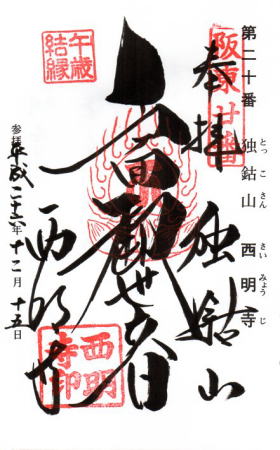 第二十番 独鈷山 西明寺
とっこさん さいみょうじ
阪東廿番
奉拝 独鈷山
観世音
西明寺
参拝 平成二六年十二月十五日
午歳
結縁
西明
寺印